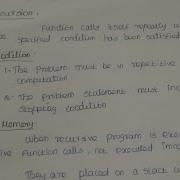 cursion.
Function calls itself repeatedly u
specified condition has been satisfied
ondition:
1. The problem must be in repetitive
computation
2. The problem statement must inc
stopping condition
Memory:
When recursive program is Exec
ive function calls, not executed imm
They are placed on a stack u